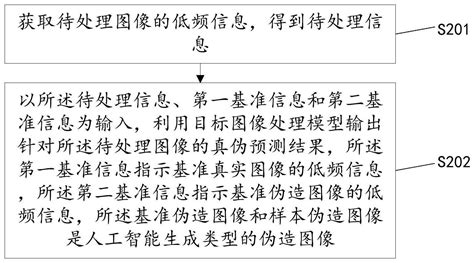 获取待处理图像的低频信息，得到待处理信
息
S201
以所述待处理信息、第一基准信息和第二基
准信息为输入，利用目标图像处理模型输出
针对所述待处理图像的真伪预测结果，所述
第一基准信息指示基准真实图像的低频信息
，所述第二基准信息指示基准伪造图像的低
频信息，所述基准伪造图像和样本伪造图像
是人工智能生成类型的伪造图像
S202